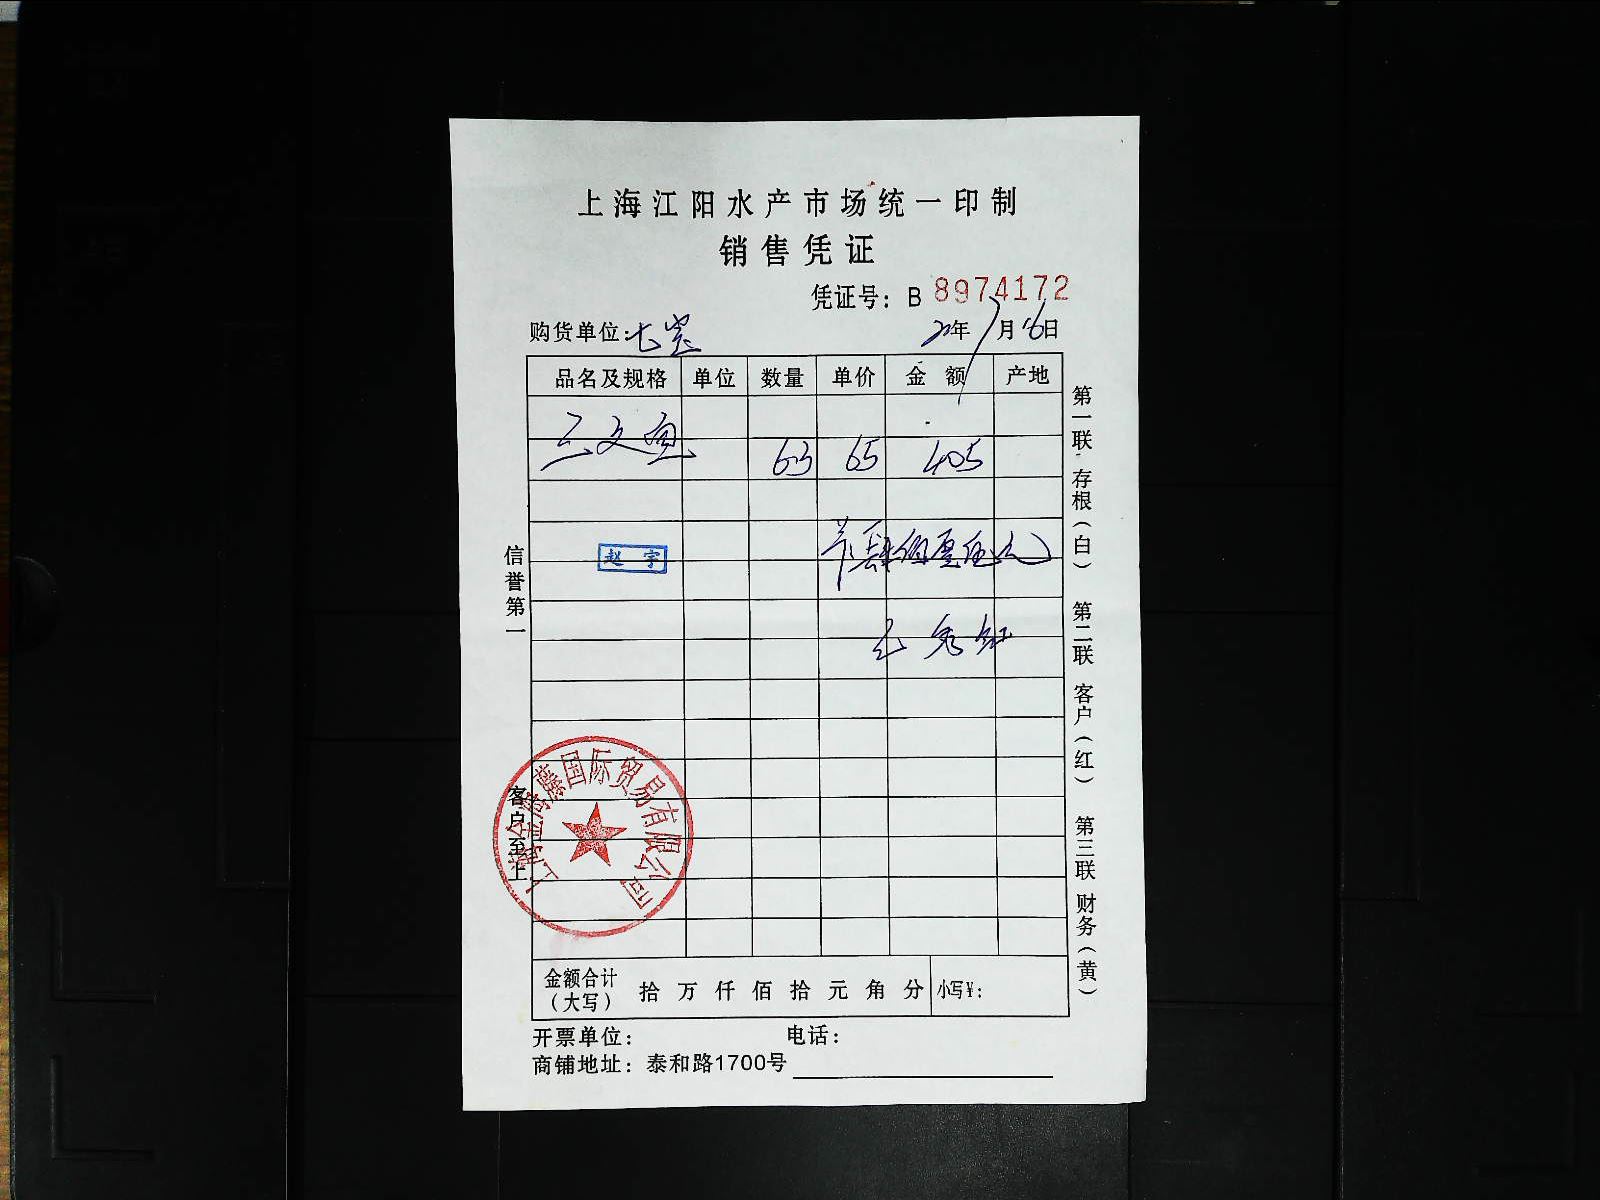 上海江阳水产市场统一印制
销售凭证
凭证号：B 8974172
购货单位：
21年7月16日
品名及规格 单位 数量 单价 金额 产地
三文鱼 63 65 405
肆佰零伍元
赵宇
信誉第一
客户至上
第一联 存根（白） 第二联 客户（红） 第三联 财务（黄）
国际贸易有限公司
金额合计（大写） 拾 万 仟 佰 拾 元 角 分 小写¥：
开票单位： 电话：
商铺地址：泰和路1700号